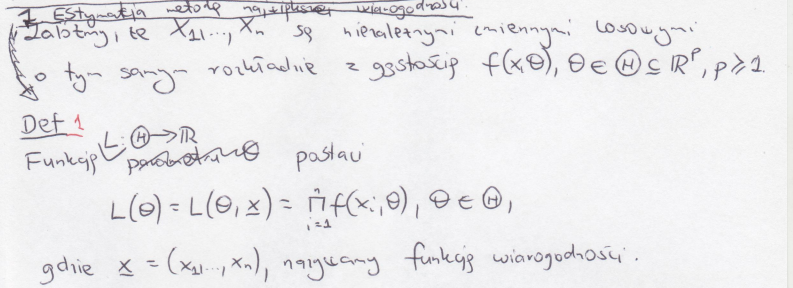 1. Estymacja metodą największej wiarogodności.
Załóżmy, że X₁,..., Xₙ są niezależnymi zmiennymi losowymi
o tym samym rozkładzie z gęstością f(x,θ), θ ∈ Θ ⊆ ℝᵖ, p ⩾ 1.
Def 1
Funkcję L: Θ → ℝ parametru θ postaci
L(θ) = L(θ, x̲) = ∏ᵢ₌₁ⁿ f(xᵢ, θ), θ ∈ Θ,
gdzie x̲ = (x₁,..., xₙ), nazywamy funkcją wiarogodności.